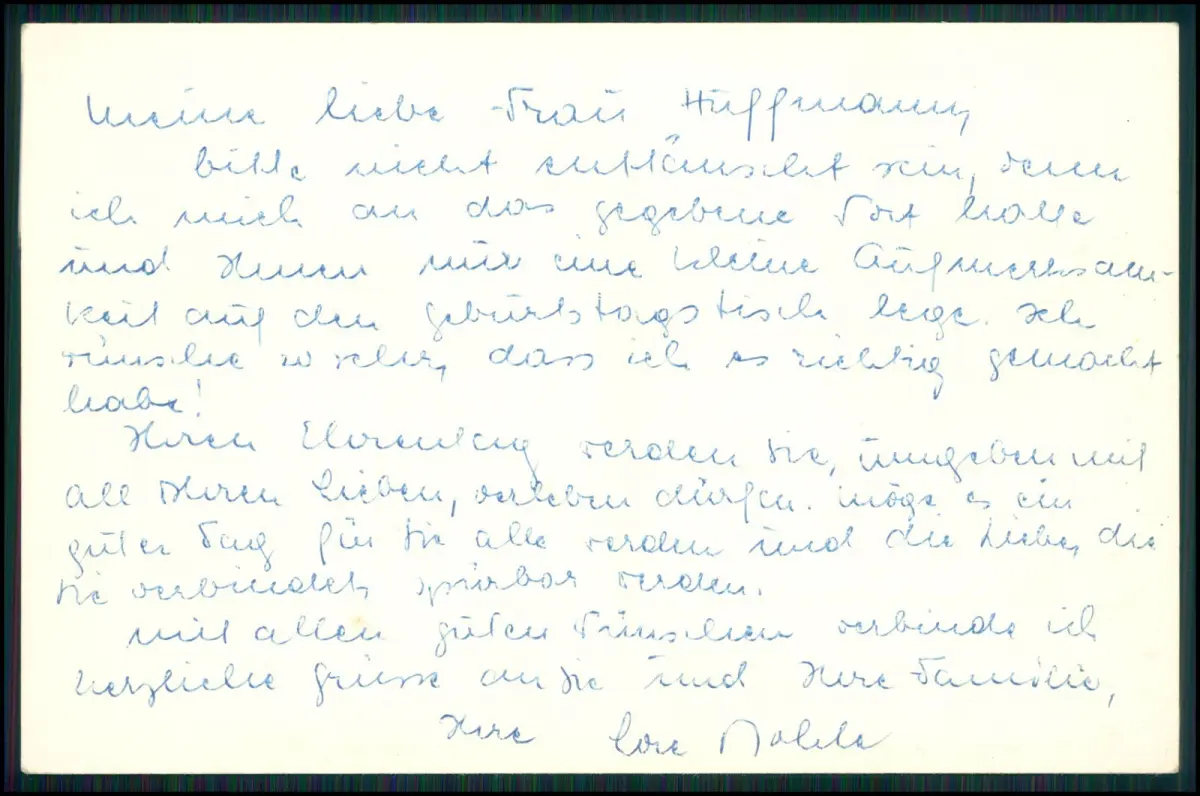 Meine liebe Frau Hüffmann,
bitte nicht enttäuscht sein, wenn
ich mich an das gegebene Wort halte
und Ihnen nur eine kleine Aufmerksam-
keit auf den Geburtstagstisch lege. Ich
wünsche so sehr, dass ich es richtig gemacht
habe!
Ihren Ehrentag werden Sie, umgeben mit
all Ihren Lieben, verleben dürfen. Möge es ein
guter Tag für Sie alle werden und die Liebe, die
Sie verbindet, spürbar werden.
Mit allen guten Wünschen verbinde ich
herzliche Grüsse an Sie und Ihre Familie,
Ihre Lore